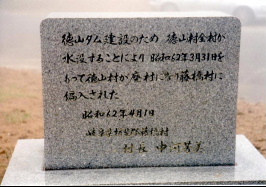 徳山ダム建設のため 徳山村全村が
水没することにより 昭和62年3月31日を
もって徳山村が廃村になり藤橋村に
編入された
昭和62年4月1日
岐阜県揖斐郡藤橋村
村長 中河